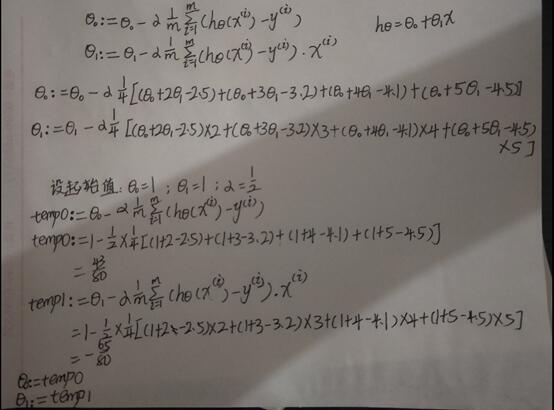 θ₀:=θ₀-α 1/m Σᵢ₌₁ᵐ(hθ(x⁽ⁱ⁾)-y⁽ⁱ⁾) hθ=θ₀+θ₁x
θ₁:=θ₁-α 1/m Σᵢ₌₁ᵐ(hθ(x⁽ⁱ⁾)-y⁽ⁱ⁾)·x⁽ⁱ⁾
θ₀:=θ₀-α 1/4[(θ₀+2θ₁-2.5)+(θ₀+3θ₁-3.2)+(θ₀+4θ₁-4.1)+(θ₀+5θ₁-4.5)]
θ₁:=θ₁-α 1/4[(θ₀+2θ₁-2.5)×2+(θ₀+3θ₁-3.2)×3+(θ₀+4θ₁-4.1)×4+(θ₀+5θ₁-4.5)
×5]
设起始值:θ₀=1;θ₁=1;α=1/2
temp0:=θ₀-α 1/m Σᵢ₌₁ᵐ(hθ(x⁽ⁱ⁾)-y⁽ⁱ⁾)
temp0:=1-1/2×1/4[(1+2-2.5)+(1+3-3.2)+(1+4-4.1)+(1+5-4.5)]
=43/80
temp1:=θ₁-α 1/m Σᵢ₌₁ᵐ(hθ(x⁽ⁱ⁾)-y⁽ⁱ⁾)·x⁽ⁱ⁾
=1-1/2×1/4[(1+2-2.5)×2+(1+3-3.2)×3+(1+4-4.1)×4+(1+5-4.5)×5]
=-65/80
θ₀:=temp0
θ₁:=temp1